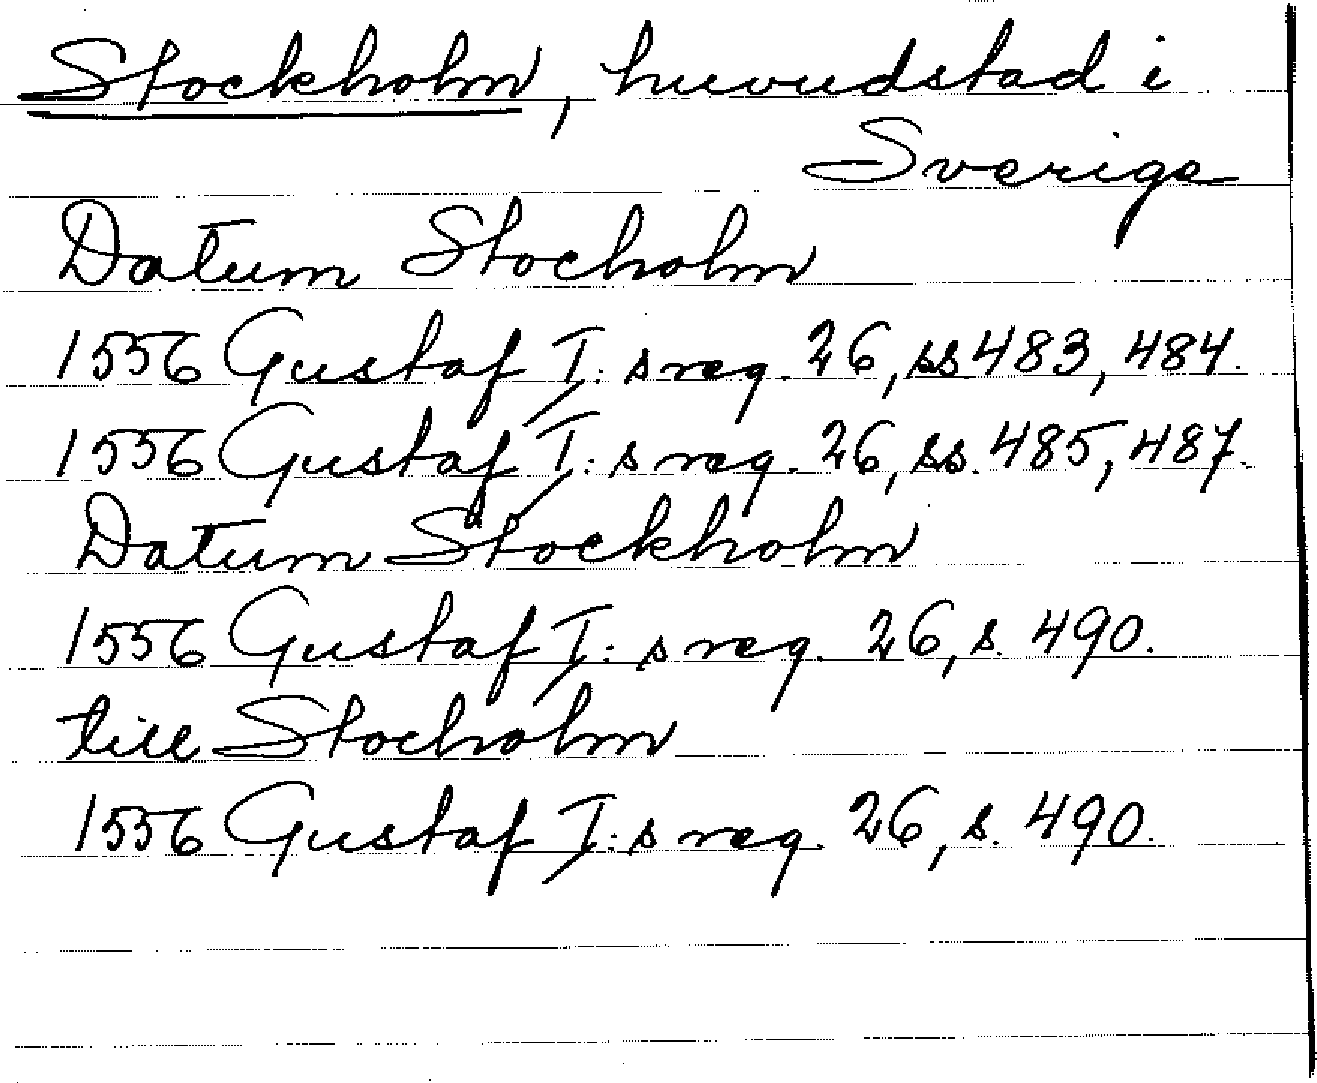 Stockholm, huvudstad i
Sverige
Datum Stocholm
1556 Gustaf I:s reg. 26, ss 483, 484.
1556 Gustaf I:s reg. 26, ss. 485, 487.
Datum Stockholm
1556 Gustaf I:s reg. 26, s. 490.
till Stocholm
1556 Gustaf I:s reg. 26, s. 490.